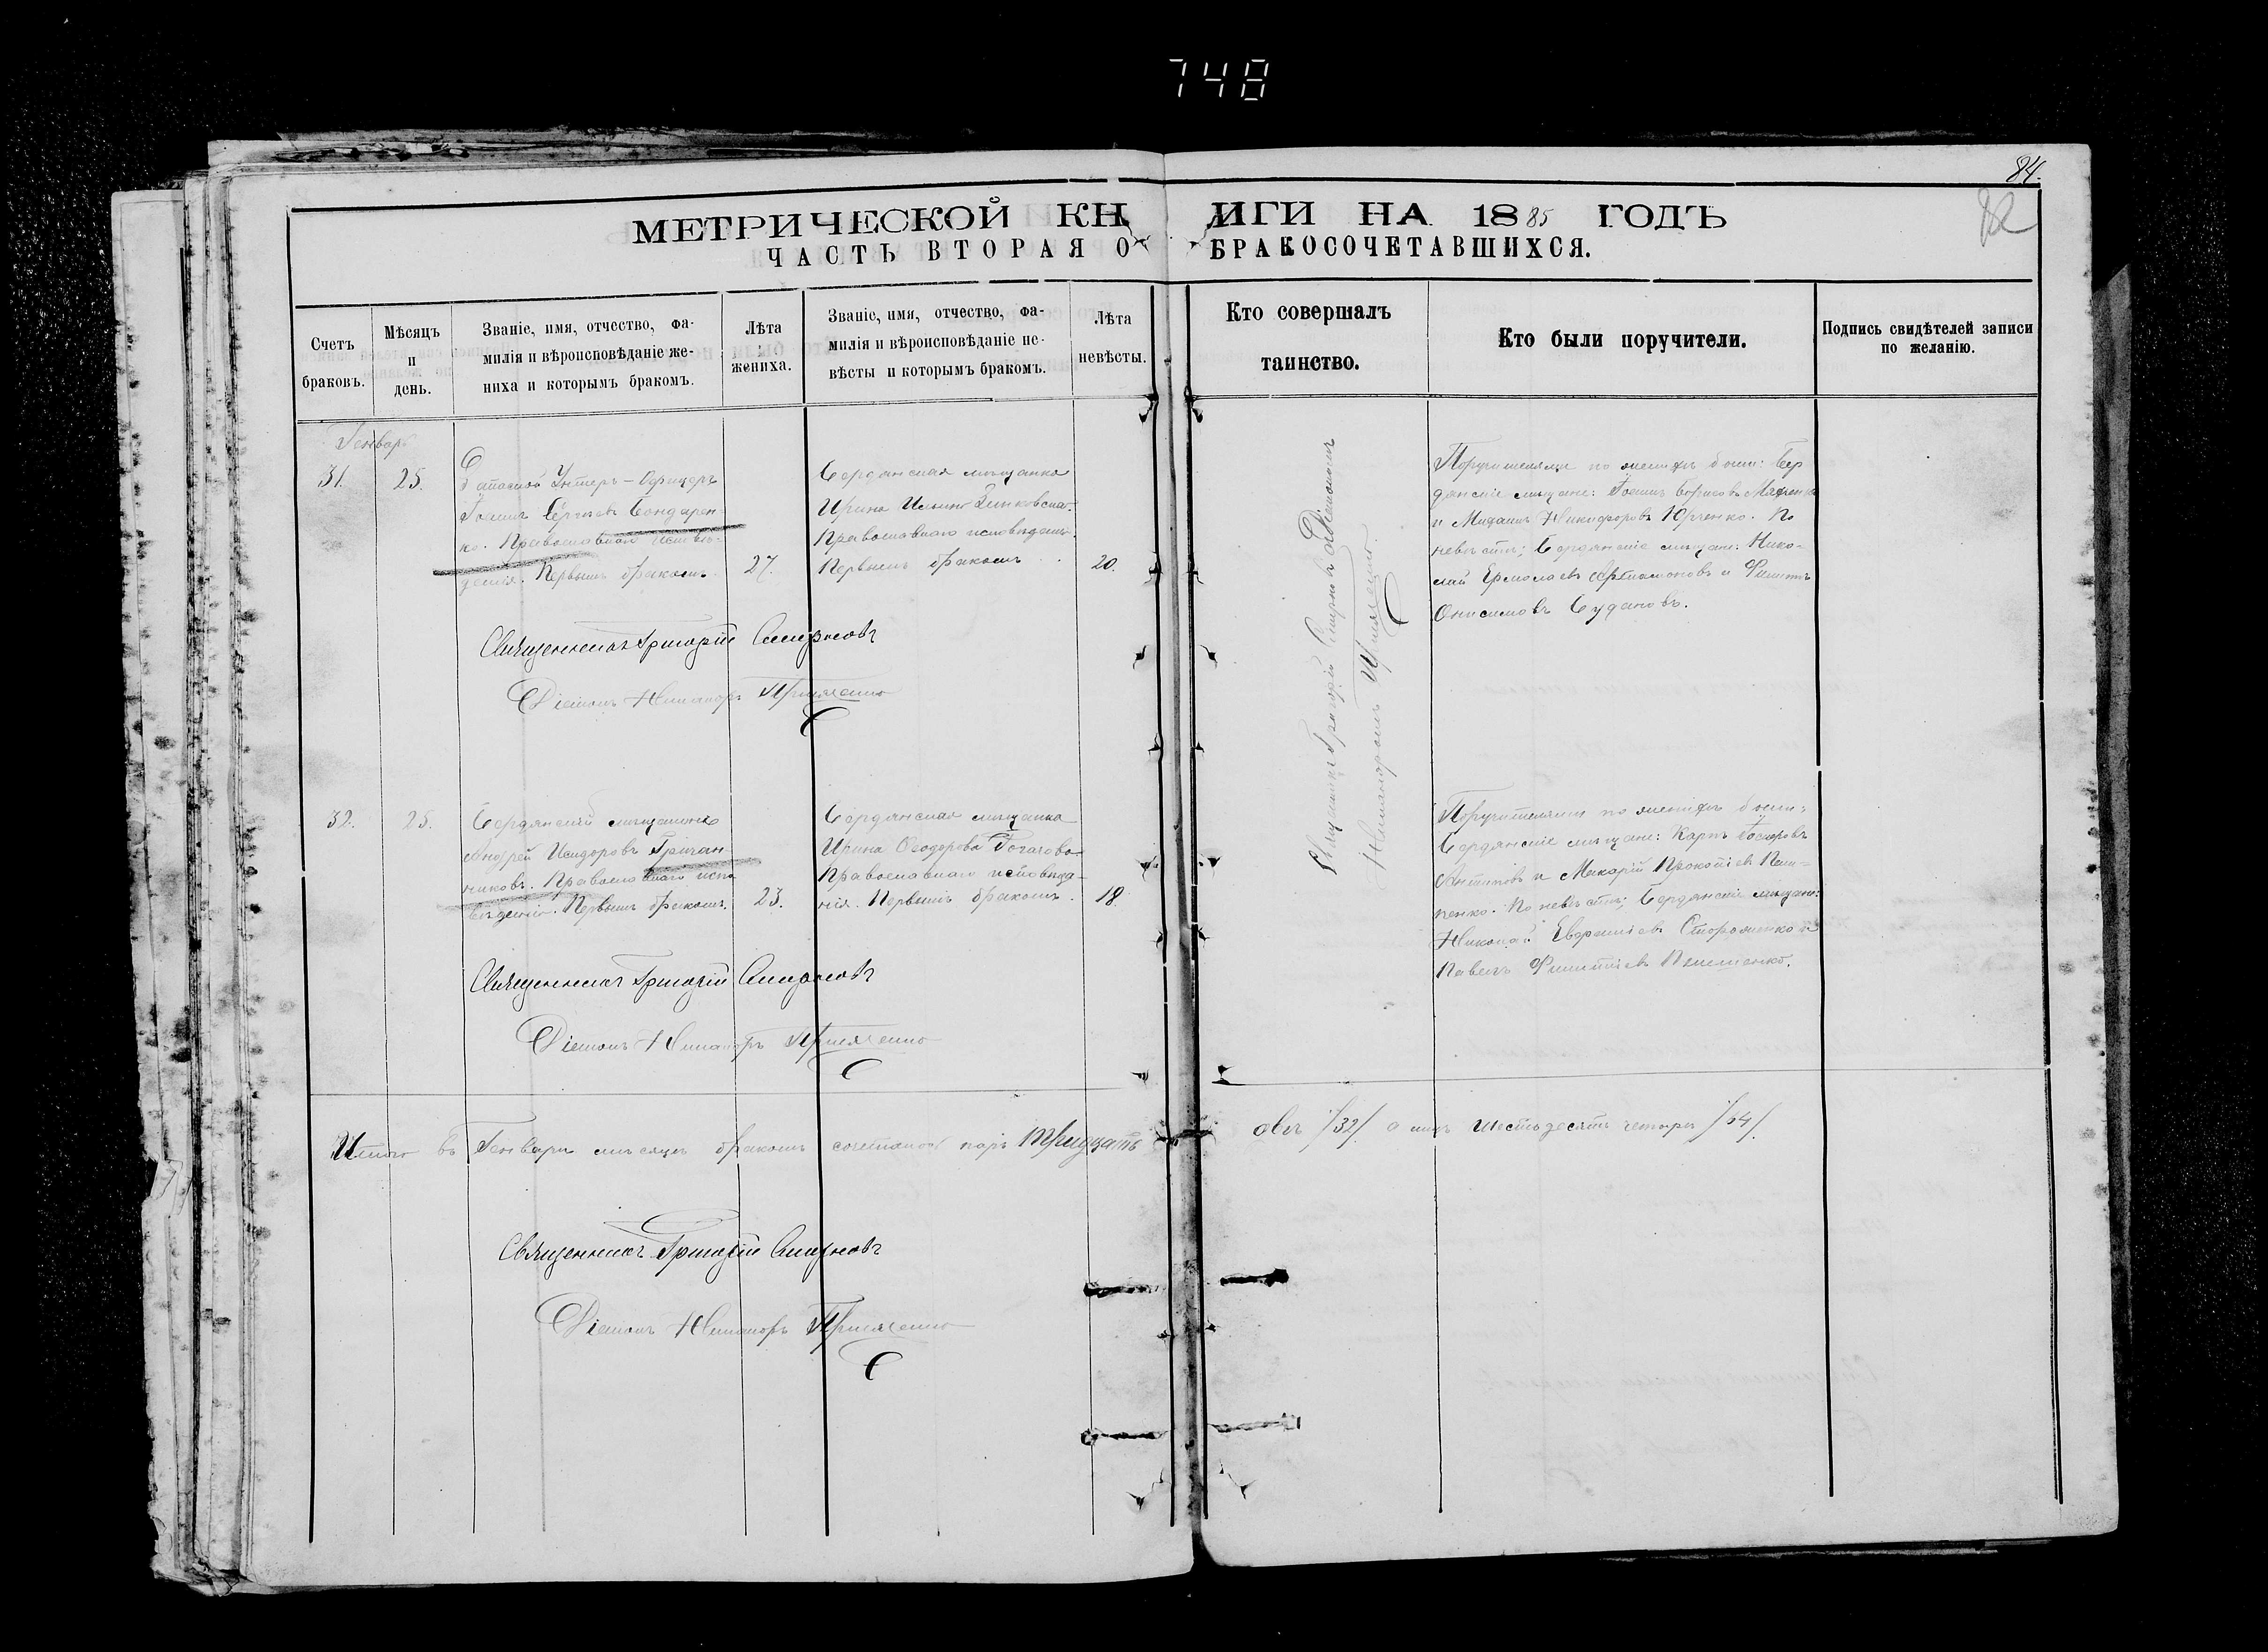 748
84.
82
МЕТРИЧЕСКОЙ КНИГИ НА 1885 ГОДЪ
ЧАСТЬ ВТОРАЯ О БРАКОСОЧЕТАВШИХСЯ.
Счетъ браковъ.
Мѣсяцъ и день.
Званіе, имя, отчество, фа-
милія и вѣроисповѣданіе же-
ниха и которымъ бракомъ.
Лѣта жениха.
Званіе, имя, отчество, фа-
милія и вѣроисповѣданіе не-
вѣсты и которымъ бракомъ.
Лѣта невѣсты.
Кто совершалъ
таинство.
Кто были поручители.
Подпись свидѣтелей записи
по желанію.
Генварь
31.
25.
Запасной Унтеръ-Офицеръ
Іоаннъ Сергіевъ Бондарен-
ко. Православнаго исповѣ-
данія. Первымъ бракомъ.
27.
Бердянская мѣщанка
Ирина Ильина Зинковская.
Православнаго исповѣданія.
Первымъ бракомъ.
20.
Священникъ Григорій Смирновъ съ Діакономъ
Никаноромъ
Поручителями по женихѣ были: Бер
дянскіе мѣщане: Іоаннъ Борисовъ
и Михаилъ Никифоровъ Юрченко. По
невѣстѣ; Бердянскіе мѣщане: Нико-
лай Ермолаевъ Артамоновъ и Филиппъ
Онисимовъ Судановъ.
Священникъ Григорій Смирновъ
Діаконъ Никаноръ
32.
25.
Бердянскій мѣщанинъ
Андрей Исидоровъ Гричан-
никовъ. Православнаго испо
вѣданія. Первымъ бракомъ.
23.
Бердянская мѣщанка
Ирина Ѳеодорова
Православнаго исповѣда-
нія. Первымъ бракомъ.
18.
Поручителями по женихѣ были:
Бердянскіе мѣщане: Карпъ
Антиповъ и Макарій Прокопіевъ
пенко. По невѣстѣ; Бердянскіе мѣщане:
Николай Евфиміевъ Стороженко и
Павелъ Филиппіевъ
Священникъ Григорій Смирновъ
Діаконъ Никаноръ
Итого въ Генварѣ мѣсяцѣ бракомъ сочеталось паръ тридцать
двѣ /32/. а лицъ шестьдесятъ четыре /64/.
Священникъ Григорій Смирновъ
Діаконъ Никаноръ